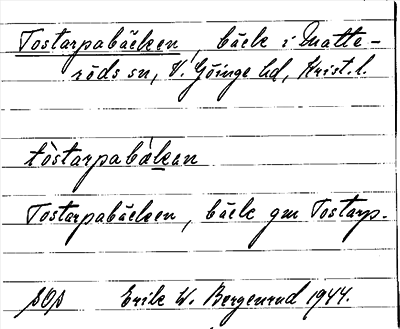 Tostarpabäcken, bäck i Matte-
röds sn, V. Göinge hd, Krist. l.
tòstarpabækan
Tostarpabäcken, bäck gm Tostarp.
sOs Erik W. Bergenrud 1944.